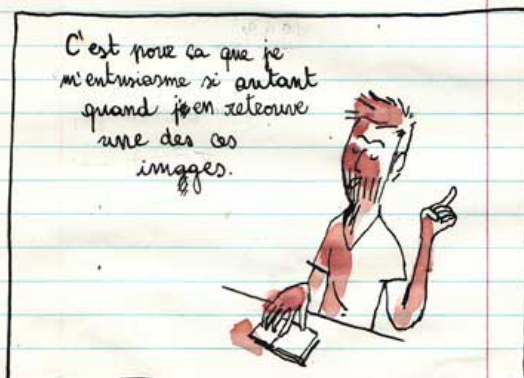 C'est pour ça que je
m'entusiasme si autant
quand j'en retrouve
une des ces
images.